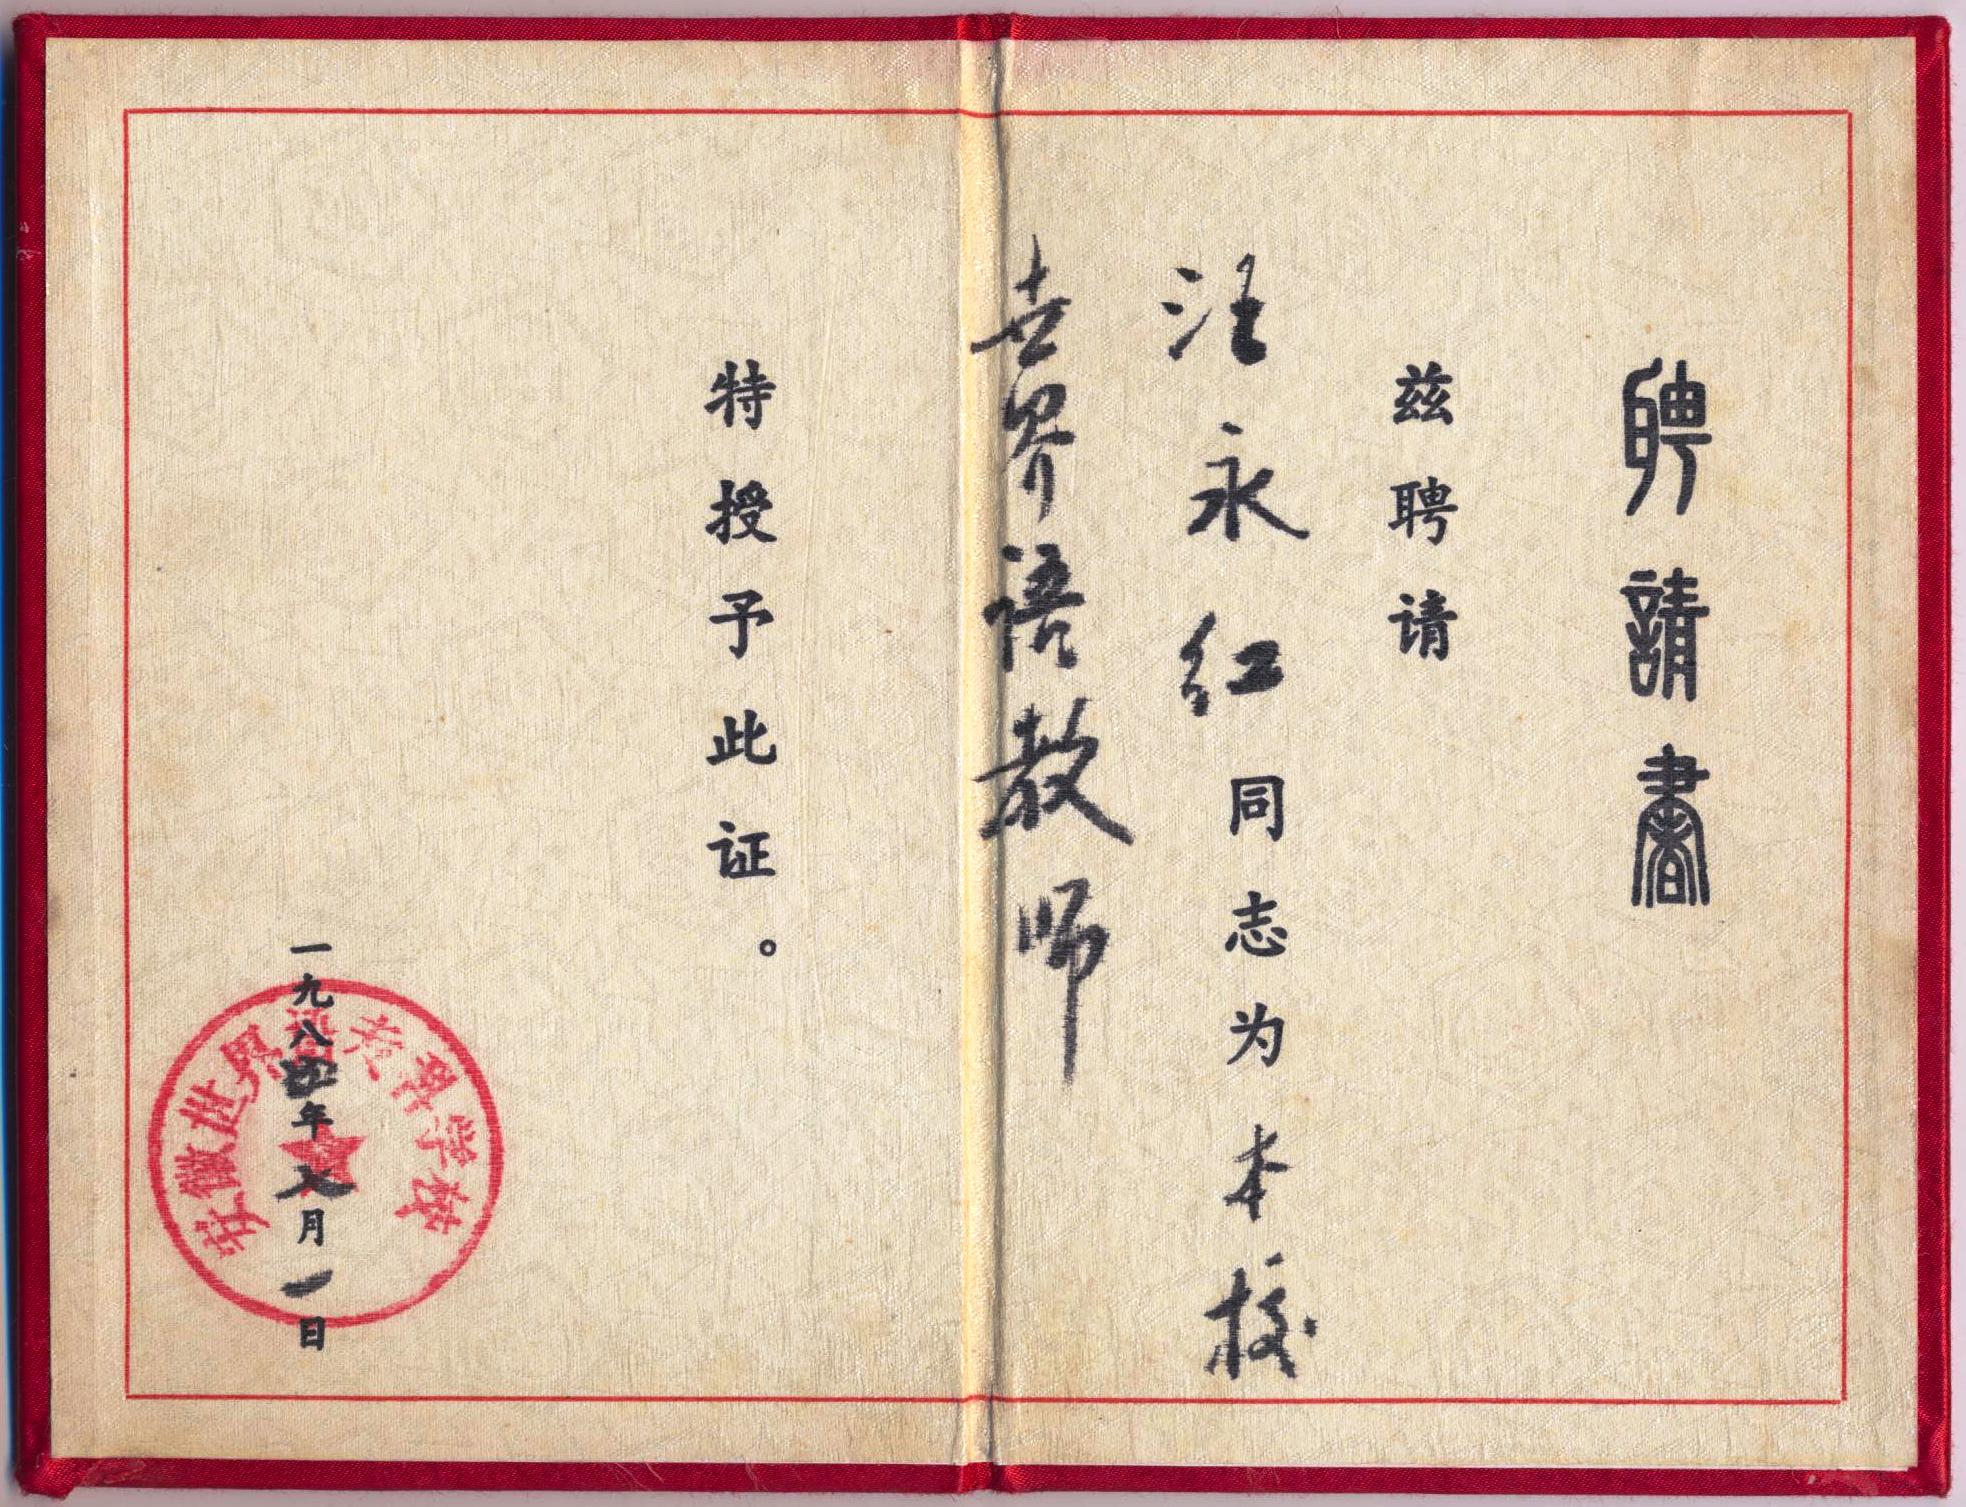 聘請書
兹聘请
汪永红同志为本校
世界语教师
特授予此证。
一九八四年七月一日
安徽世界语亚科学校